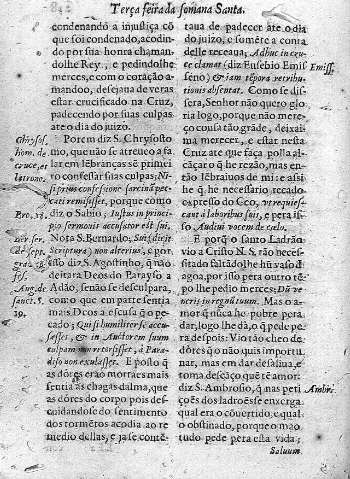 Terça feira da somana Santa.
condenandô a injustiça cõ
que foi condenado, acodin
do por sua honra chaman
dolhe Rey, e pedindolhe
merces, e com o coração a-
mandoo, desejaua de veras
estar crucificado na Cruz,
padecendo por suas culpas
ate o dia do juizo.
Porem diz S. Chrysosto
mo, que não se atreueo a fa-
lar em lẽbranças sẽ primei
ro confessar suas culpas; Ni-
si prius confessione sarcinã pec-
cati remisisset, porque como
diz o Sabio; Iustus in princi-
pio sermonis accusator est sui.
Nota S. Bernardo; Sui (dicit
Scriptura) non alterius, e por
isso diz S. Agostinho, q̃ não
deitara Deos do Parayso a
Adão, senão se desculpara,
como que em parte sentia
mais Deos a escusa q̃ o pe-
cado; Qui si humiliter se accu-
sasset, & in Auctorem suum
culpam non retorsisset, â Para-
diso non exulasset. E posto q̃
as dores erão mortaes mais
sentia as chagas dalma, que
as dôres do corpo pois des-
cuidandose do sentimento
dos tormẽtos acodia ao re
medio dellas, e ja se contẽ-
Chrysos.
hom. de
cruce, et
latrone.
Pro. 18.
Ber ser.
de sept.
grad. &
Aug. de
sanct. 5.
39.
taua de padecer ate o dia
do juizo, e somẽte a conta
delle receaua; Adhuc in cru-
ce clamat (diz Eusebio Emis
seno) & iam tẽpora retribu-
tionis absentat. Como se dis-
sera, Senhor não quero glo
ria logo, porque não mere-
ço cousa tão grãde, deixai-
me merecer, e estar nesta
Cruz ate que faça polla al-
cãçar o q̃ he rezão, mas en-
tão lẽbraiuos de mi: e assi
he q̃ he necessario recado
expresso do Ceo, vt requies-
cant â laboribus suis, e pera is-
so, Audiui vocem de cælo.
E porq̃ o santo Ladrão
via a Christo N. S. tão neces-
sitado
por isso pera outro tẽ-
po lhe pedio merces: Dũ ve
neris in regnũ tuum. Mas o a-
mor q̃ nũca he pobre pera
dar, logo lhe dà, o q̃ pede pe
ra despois: Vio tão cheo de
dôres q̃ o não quis importu
nar, mas em dar descãsua, e
toma descãço que tẽ amor:
diz S. Ambrosio, q̃ nas peti
ções dos ladroẽs se enxerga
qual era o cõuertido, e qual
o obstinado, porque o mao
tudo pede pera esta vida;
Saluum
Emiss.
Ambr.